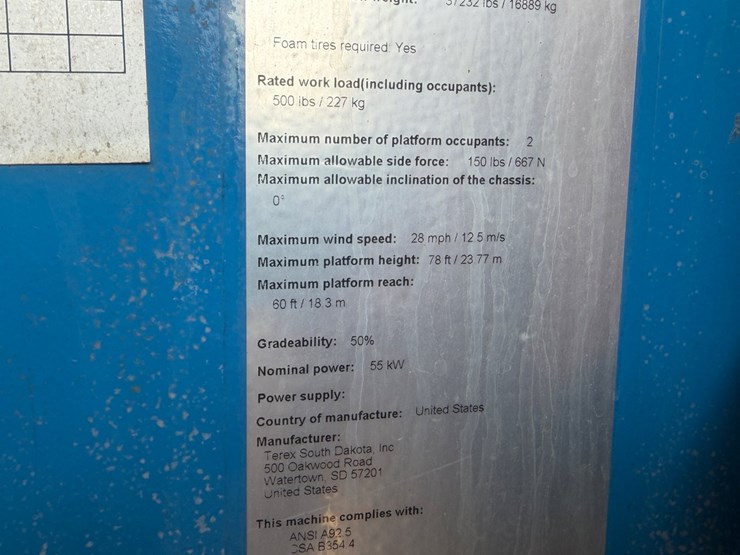 37232 lbs / 16889 kg
Foam tires required: Yes
Rated work load(including occupants):
500 lbs / 227 kg
Maximum number of platform occupants: 2
Maximum allowable side force: 150 lbs / 667 N
Maximum allowable inclination of the chassis:
0°
Maximum wind speed: 28 mph / 12.5 m/s
Maximum platform height: 78 ft / 23.77 m
Maximum platform reach:
60 ft / 18.3 m
Gradeability: 50%
Nominal power: 55 kW
Power supply:
Country of manufacture: United States
Manufacturer:
Terex South Dakota, Inc
500 Oakwood Road
Watertown, SD 57201
United States
This machine complies with:
ANSI A92.5
CSA B354.4